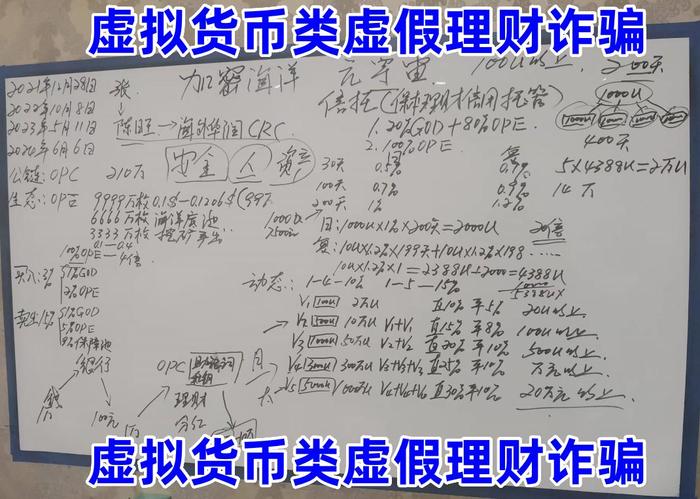 虚拟货币类虚假理财诈骗
2021年12月28日
2022年10月8日
2023年5月11日
2020年6月6日
公链: OPC 210万
张
陈旺→海外华润CRC
加密海洋
元宇宙
100U以上
200天
倍投(保本理财信用托管)
安全 人 资产
1.20%GOD+80%OPE
2.100%OPE
30天 0.5%
100天 0.7%
200天 1% 1.2%
1000U
400天
5×4388U=2万U
14万
9999万枚 0.1$-0.1206$(99%
6666万枚 海洋底池
3333万枚 挖矿产出
0.1-0.4
100%OPE-4倍
买入:3% 1%GOD
2%OPE
卖出15% 5%GOD
5%OPE
保障池
日:1000U×1%×200天=2000U
复:10U×1.2%×199天+10U×1.2%×198……
10U×1.2%×1=2388U+2000=4388U
20倍
5388U
动态: 1-4-10% 1-5-15%
V1 100U 2万U 直10% 平5% 20U以上
V2 500U 10万U V1+V1 直15% 平8% 100U以上
V3 1000U 50万U V2+V2 直20% 平10% 500U以上
V4 3000U 300万U V3+V3+V3 直25% 平10% 万元以上
V5 5000U 1000万U V4+V4+V4 直30% 平10% 20万元以上
银行
钱
100元
1万
OPC
理财
分红
月
虚拟货币类虚假理财诈骗